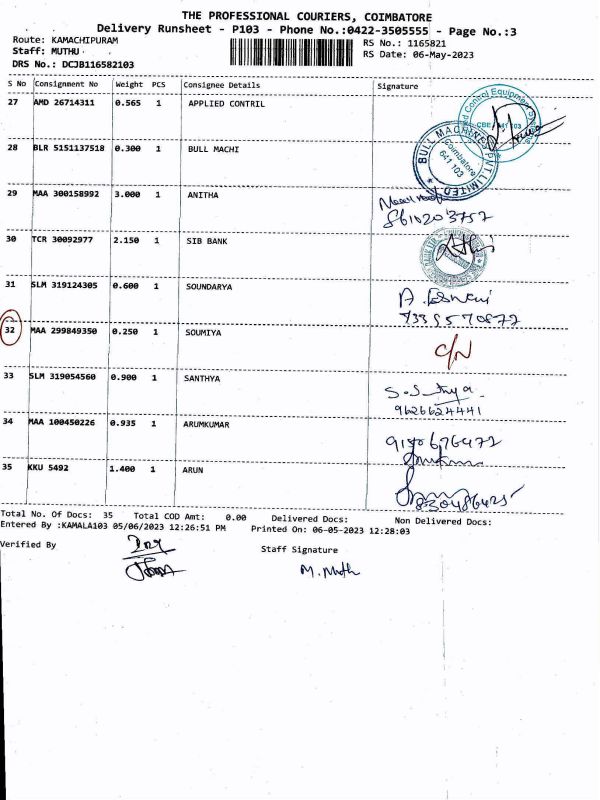 THE PROFESSIONAL COURIERS, COIMBATORE
Delivery Runsheet - P103 - Phone No.:0422-3505555 - Page No.:3
Route: KAMACHIPURAM
RS No.: 1165821
Staff: MUTHU
RS Date: 06-May-2023
DRS No.: DCJB116582103
S No Consignment No Weight PCS Consignee Details Signature
27 AMD 26714311 0.565 1 APPLIED CONTRIL
28 BLR 5151137518 0.300 1 BULL MACHI
BULL MACHINES PVT LIMITED
Coimbatore
641 103
29 MAA 300158992 3.000 1 ANITHA
30 TCR 30092977 2.150 1 SIB BANK
31 SLM 319124305 0.600 1 SOUNDARYA
32 MAA 299849350 0.250 1 SOUMIYA
C/N
33 SLM 319054560 0.900 1 SANTHYA
9626624441
34 MAA 100450226 0.935 1 ARUMKUMAR
35 KKU 5492 1.400 1 ARUN
Total No. Of Docs: 35 Total COD Amt: 0.00 Delivered Docs: Non Delivered Docs:
Entered By :KAMALA103 05/06/2023 12:26:51 PM Printed On: 06-05-2023 12:28:03
Verified By
Staff Signature
M. Muth